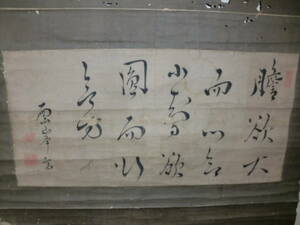 膽欲大
而心欲
小智欲
圓而行
欲方